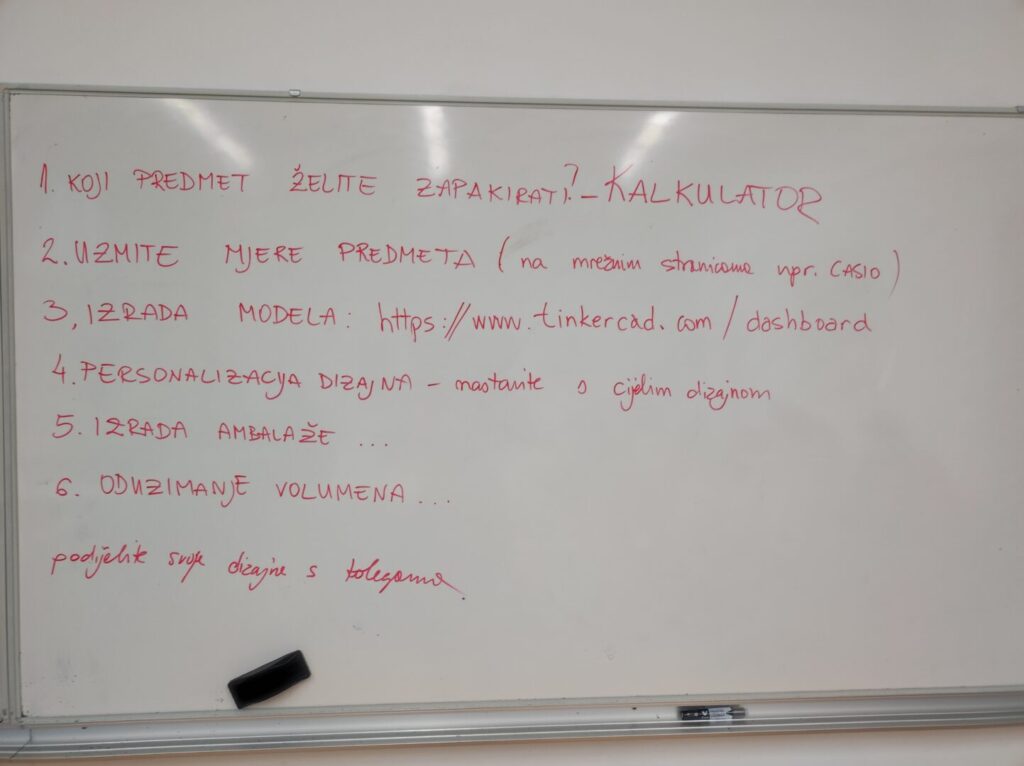 1. KOJI PREDMET ŽELITE ZAPAKIRATI? – KALKULATOR
2. UZMITE MJERE PREDMETA (na mrežnim stranicama npr. CASIO)
3. IZRADA MODELA: https://www.tinkercad.com/dashboard
4. PERSONALIZACIJA DIZAJNA – nastavite s cijelim dizajnom
5. IZRADA AMBALAŽE ...
6. ODUZIMANJE VOLUMENA ...
podijelite svoje dizajne s kolegama